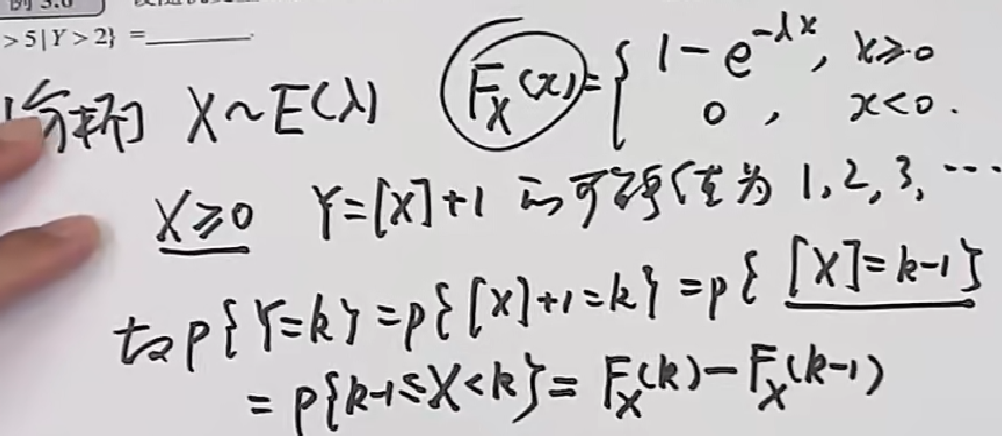 例 3.6
> 5|Y > 2} = ______.
解析 X~E(λ) F_X(x)={ 1-e^{-λx}, x≥0
0, x<0.
X≥0 Y=[X]+1 的可能值为 1,2,3,…
故P{Y=k}=P{[X]+1=k}=P{[X]=k-1}
=P{k-1≤X<k}=F_X(k)-F_X(k-1)